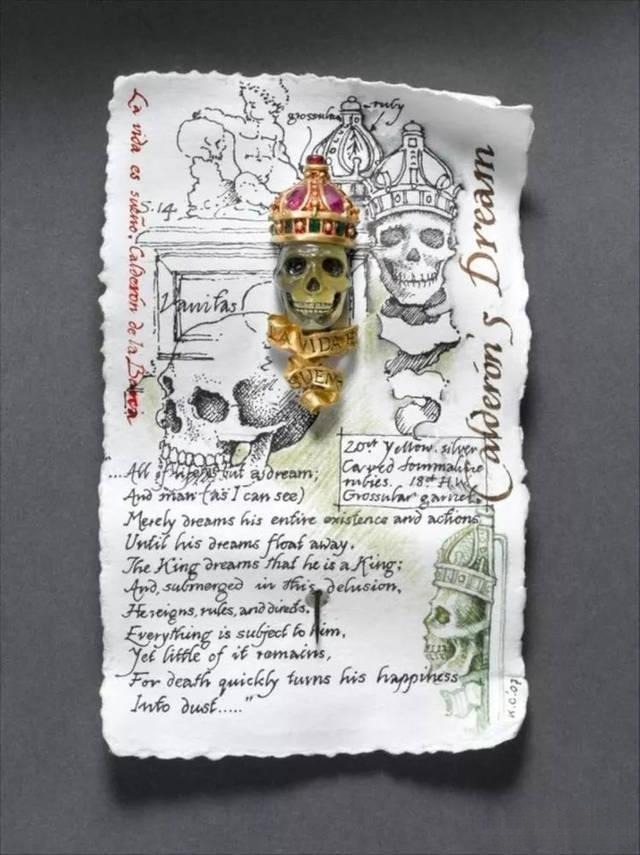 La vida es sueño. Calderón de la Barca
grossular
ruby
S. 14.
Vanitas
Calderón's Dream
LA VIDA E
SUEÑ
20ct Yellow, silver
Carved tourmaline
rubies. 18ct H.W.
Grossular garnet.
...All of life is but a dream;
And man (as I can see)
Merely dreams his entire existence and actions
Until his dreams float away.
The King dreams that he is a King;
And, submerged in this delusion,
He reigns, rules, and directs.
Everything is subject to him,
Yet little of it remains,
For death quickly turns his happiness
Into dust....."
K.C.'07